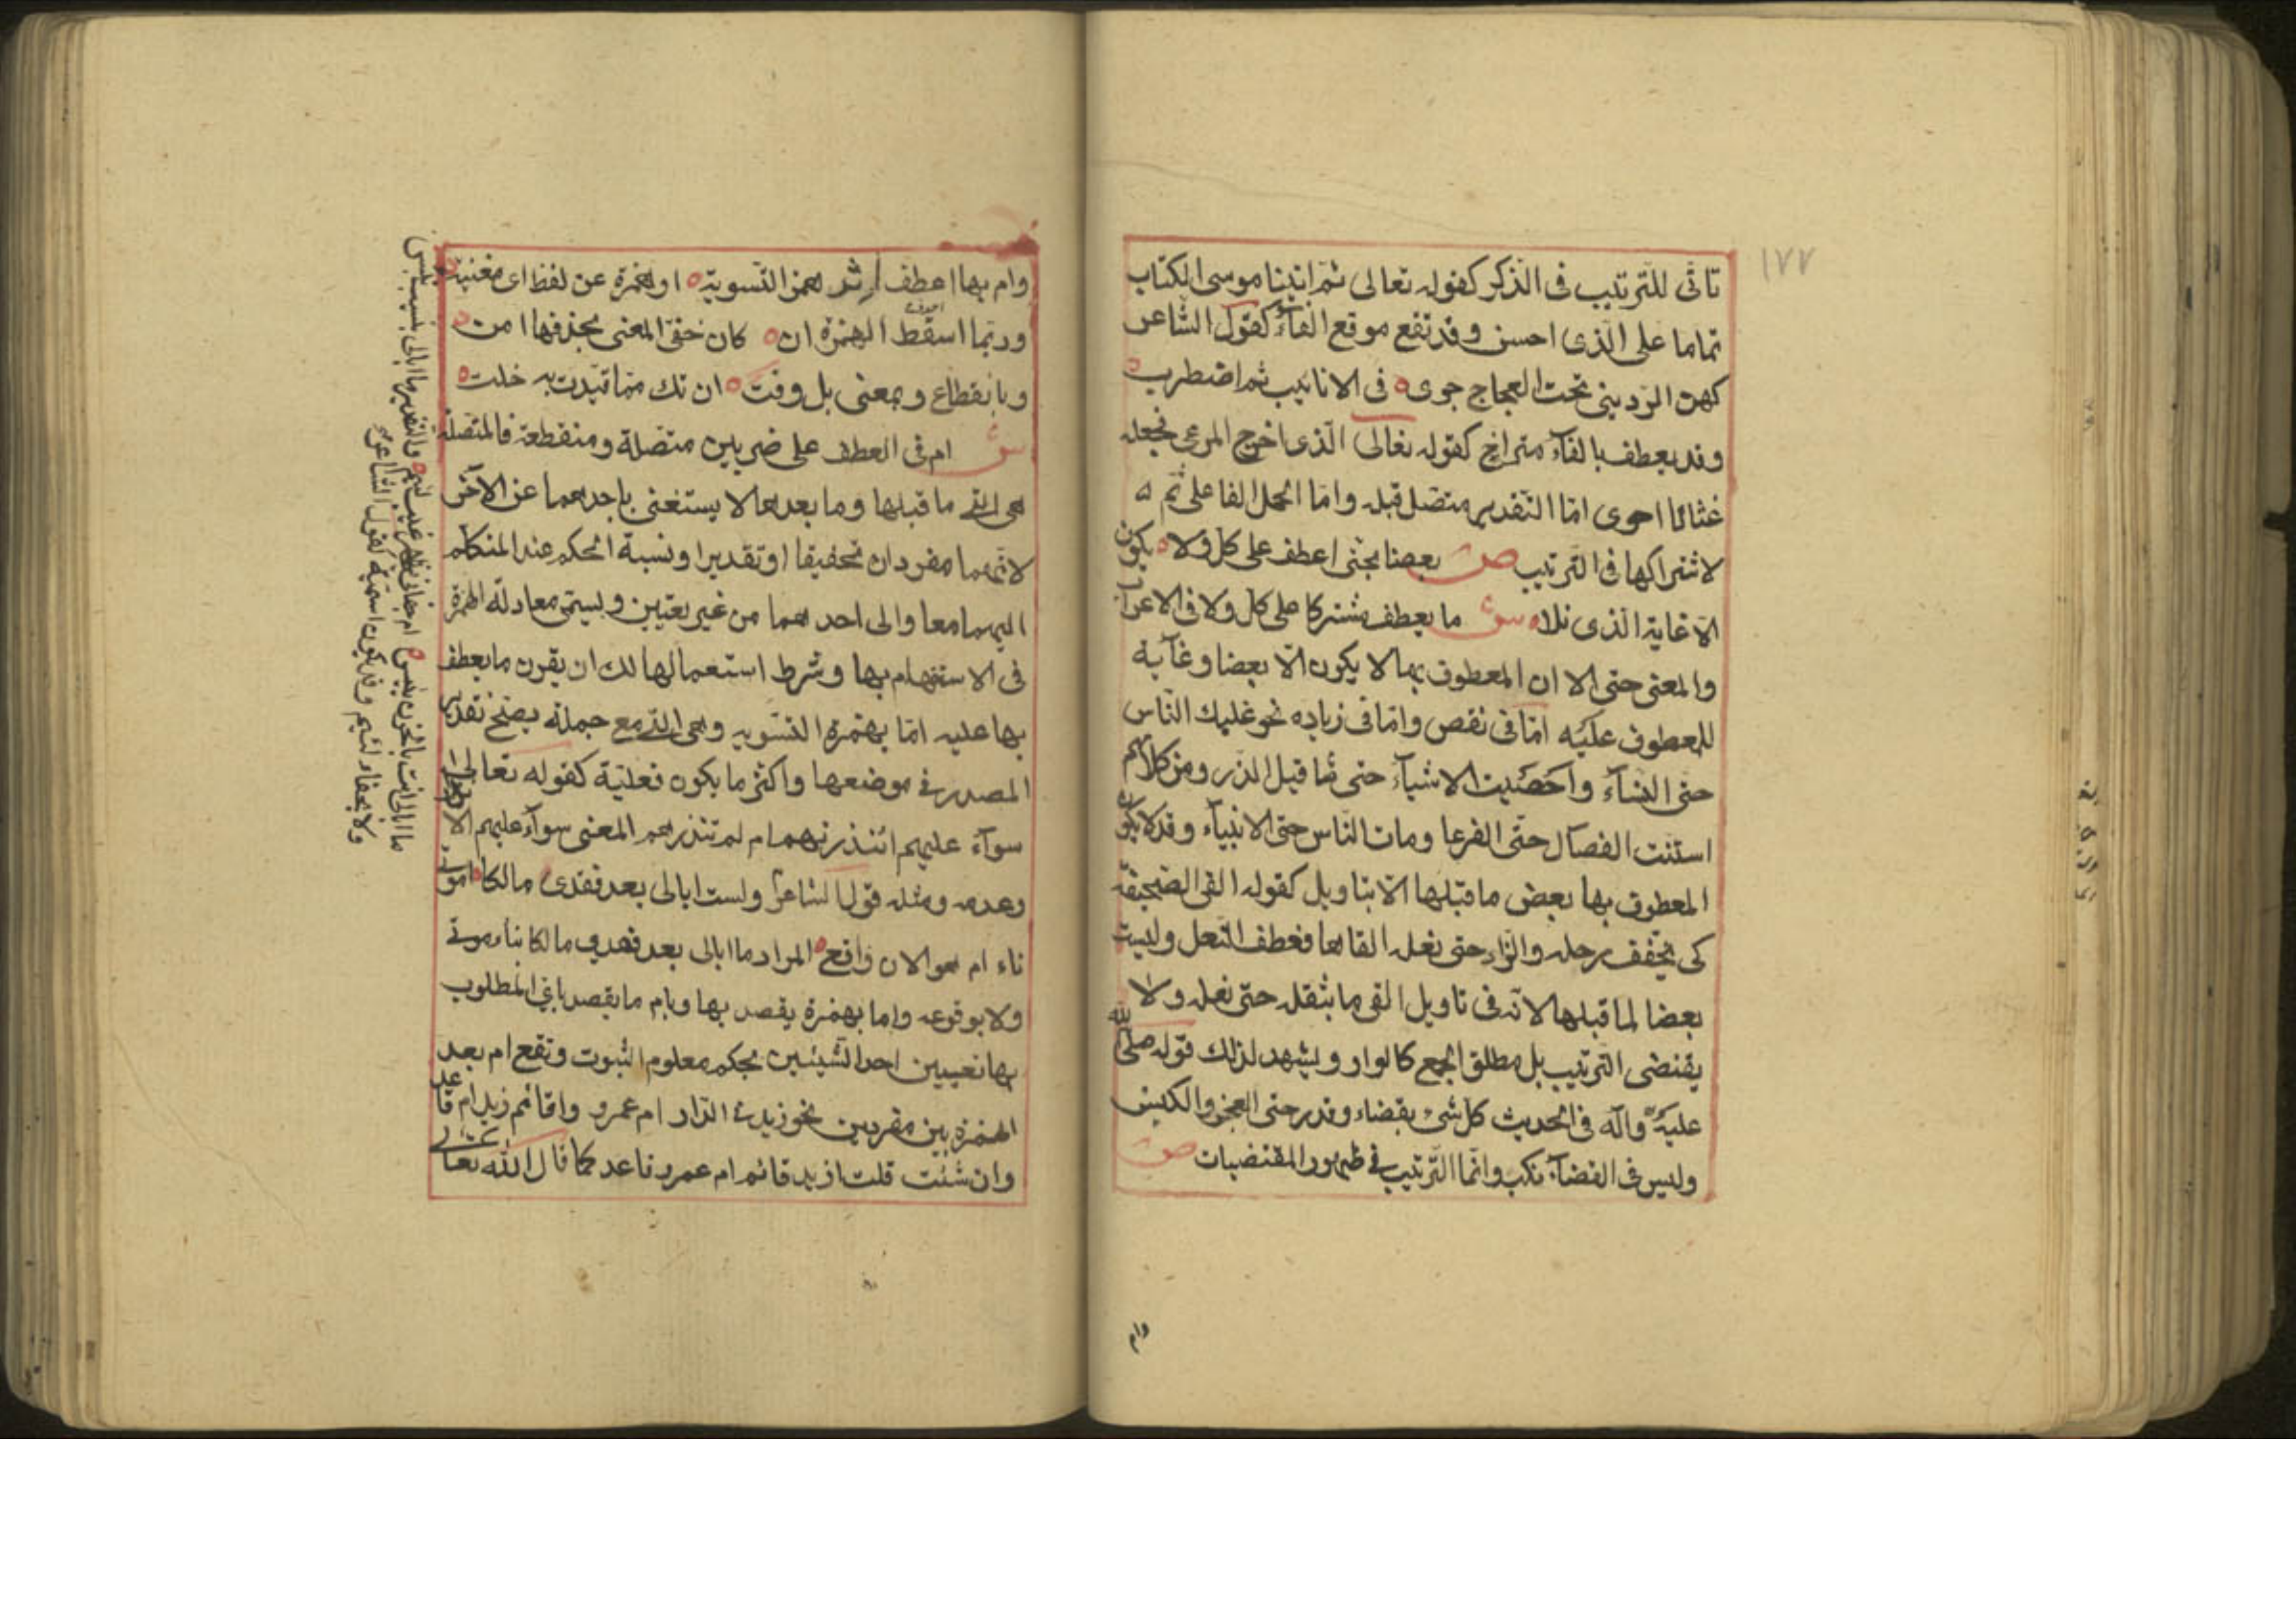 ١٧٧
تأتى للترتيب فى الذكر كقوله تعالى ثم اتينا موسى الكتاب
تماما على الذى احسن وقد تقع موقع الفاء كقول الشاعر
كهز الردينى تحت العجاج جرى فى الانابيب ثم اضطرب
وقد يعطف بالفاء متراخ كقوله تعالى الذى اخرج المرعى فجعله
غثاء احوى اما التقدير متصل قبله واما لحمل الفا على ثم
لاشتراكهما فى الترتيب ص بعضا بحتى اعطف على كل ولا يكون
الا غاية الذى تلا ش ما يعطف مشتركا على كل ولا فى الاعراب
والمعنى حتى الا ان المعطوف بها لا يكون الا بعضا وغاية
للمعطوف عليه اما فى نقص واما فى زياده نحو غلبك الناس
حتى النساء واحصيت الاشياء حتى مثاقيل الذر ومن كلامهم
استنت الفصال حتى القرعا ومات الناس حتى الانبياء وقد لا يكون
المعطوف بها بعض ما قبلها الا بتاويل كقوله القى الصحيفة
كى يخفف رحله والزاد حتى نعله القاها فعطف النعل وليست
بعضا لما قبلها لانه فى تاويل القى ما يثقله حتى نعله ولا
يقتضى الترتيب بل مطلق الجمع كالواو ويشهد لذلك قوله صلى الله
عليه وآله فى الحديث كل شئ بقضاء وقدر حتى العجز والكيس
وليس فى القضاء ترتيب وانما الترتيب فى ظهور المقتضيات ص
وام
وام بها اعطف اثر همز التسوية او همزة عن لفظ اى مغنية
وربما اسقط الهمزة ان كان خفا المعنى بحذفها امن
وبانقطاع وبمعنى بل وفت ان تك مما قيدت به خلت
ش ام فى العطف على ضربين متصلة ومنقطعة فالمتصلة
هى التى ما قبلها وما بعدها لا يستغنى باحدهما عن الآخر
لانهما مفردان تحقيقا او تقديرا ونسبة الحكم عند المتكلم
اليهما معا والى احدهما من غير تعيين ويسمى معادلة الهمزة
فى الاستفهام بها وشرط استعمالها لذلك ان يقرن ما يعطف
بها عليه اما بهمزة التسويه وهى التى مع جملة يصح تقدير
المصدر فى موضعها واكثر ما يكون فعلية كقوله تعالى
سوآء عليهم أأنذرتهم ام لم تنذرهم المعنى سوآء عليهم الانذار
وعدمه ومثله قول الشاعر ولست ابالى بعد فقدى مالكا اموتى
ناء ام هو الان واقع المراد ما ابالى بعد فقدى مالكا بناء موتى
ولا بوقوعه واما بهمزة يقصد بها وبام ما يقصد باى المطلوب
بها تعيين احد الشيئين بحكم معلوم الثبوت وتقع ام بعد
الهمزة بين مفردين نحو ازيد فى الدار ام عمرو واقائم زيد ام قاعد
وان شئت قلت ازيد قائم ام عمرو قاعد كما قال الله تعالى
ما ابالى انت بالحزن تيس ام جفانى بظهر غيب لئيم والتقدير ما ابالى بنبيب تيس
ولا بجفاء لئيم وقد يكون اسمية كقول الشاعر